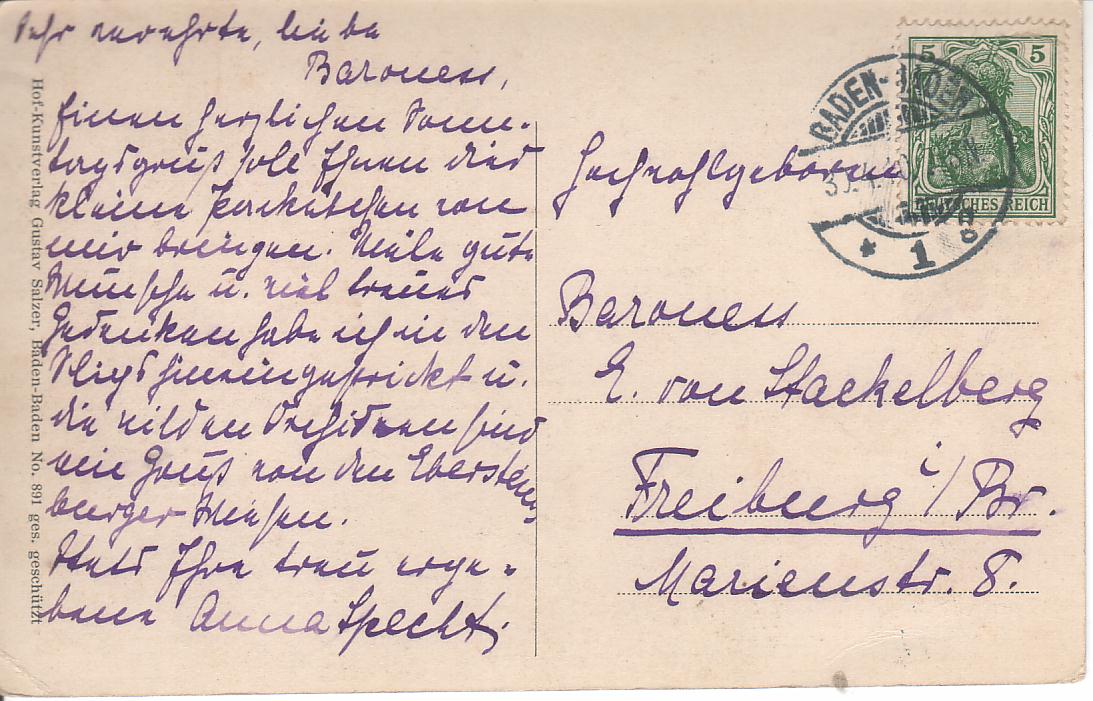 Sehr verehrte, liebe
Baroness,
Einen herzlichen Sonn-
tagsgruß soll Ihnen dies
kleine Paketchen von
mir bringen. Viele gute
Wünsche u. viel treues
Gedenken habe ich in den
hineingestrickt u.
die wilden Orchideen sind
ein Gruß von den Eberstein-
burger Wiesen.
Stets Ihre treu erge-
bene Anna Specht.
Hochwohlgeboren
Baroness
E. von Stackelberg
Freiburg i/Br.
Marienstr. 8.
5 5
DEUTSCHES REICH
BADEN-BADEN
* 1 g
Hof-Kunstverlag Gustav Salzer, Baden-Baden No. 891 ges. geschützt